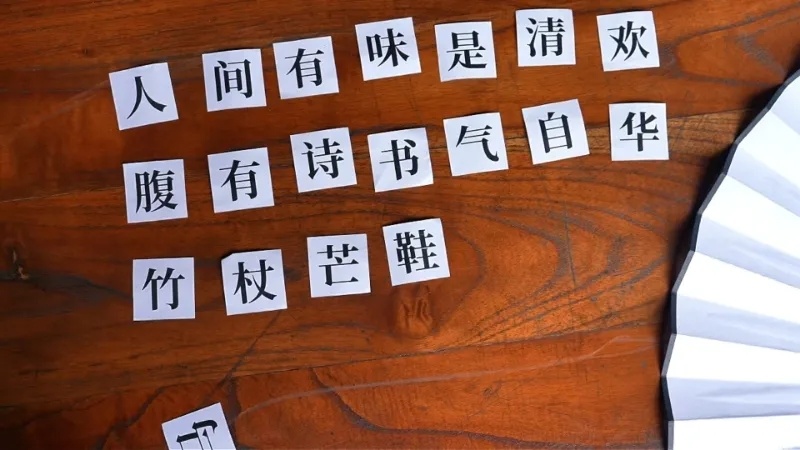 人间有味是清欢
腹有诗书气自华
竹杖芒鞋